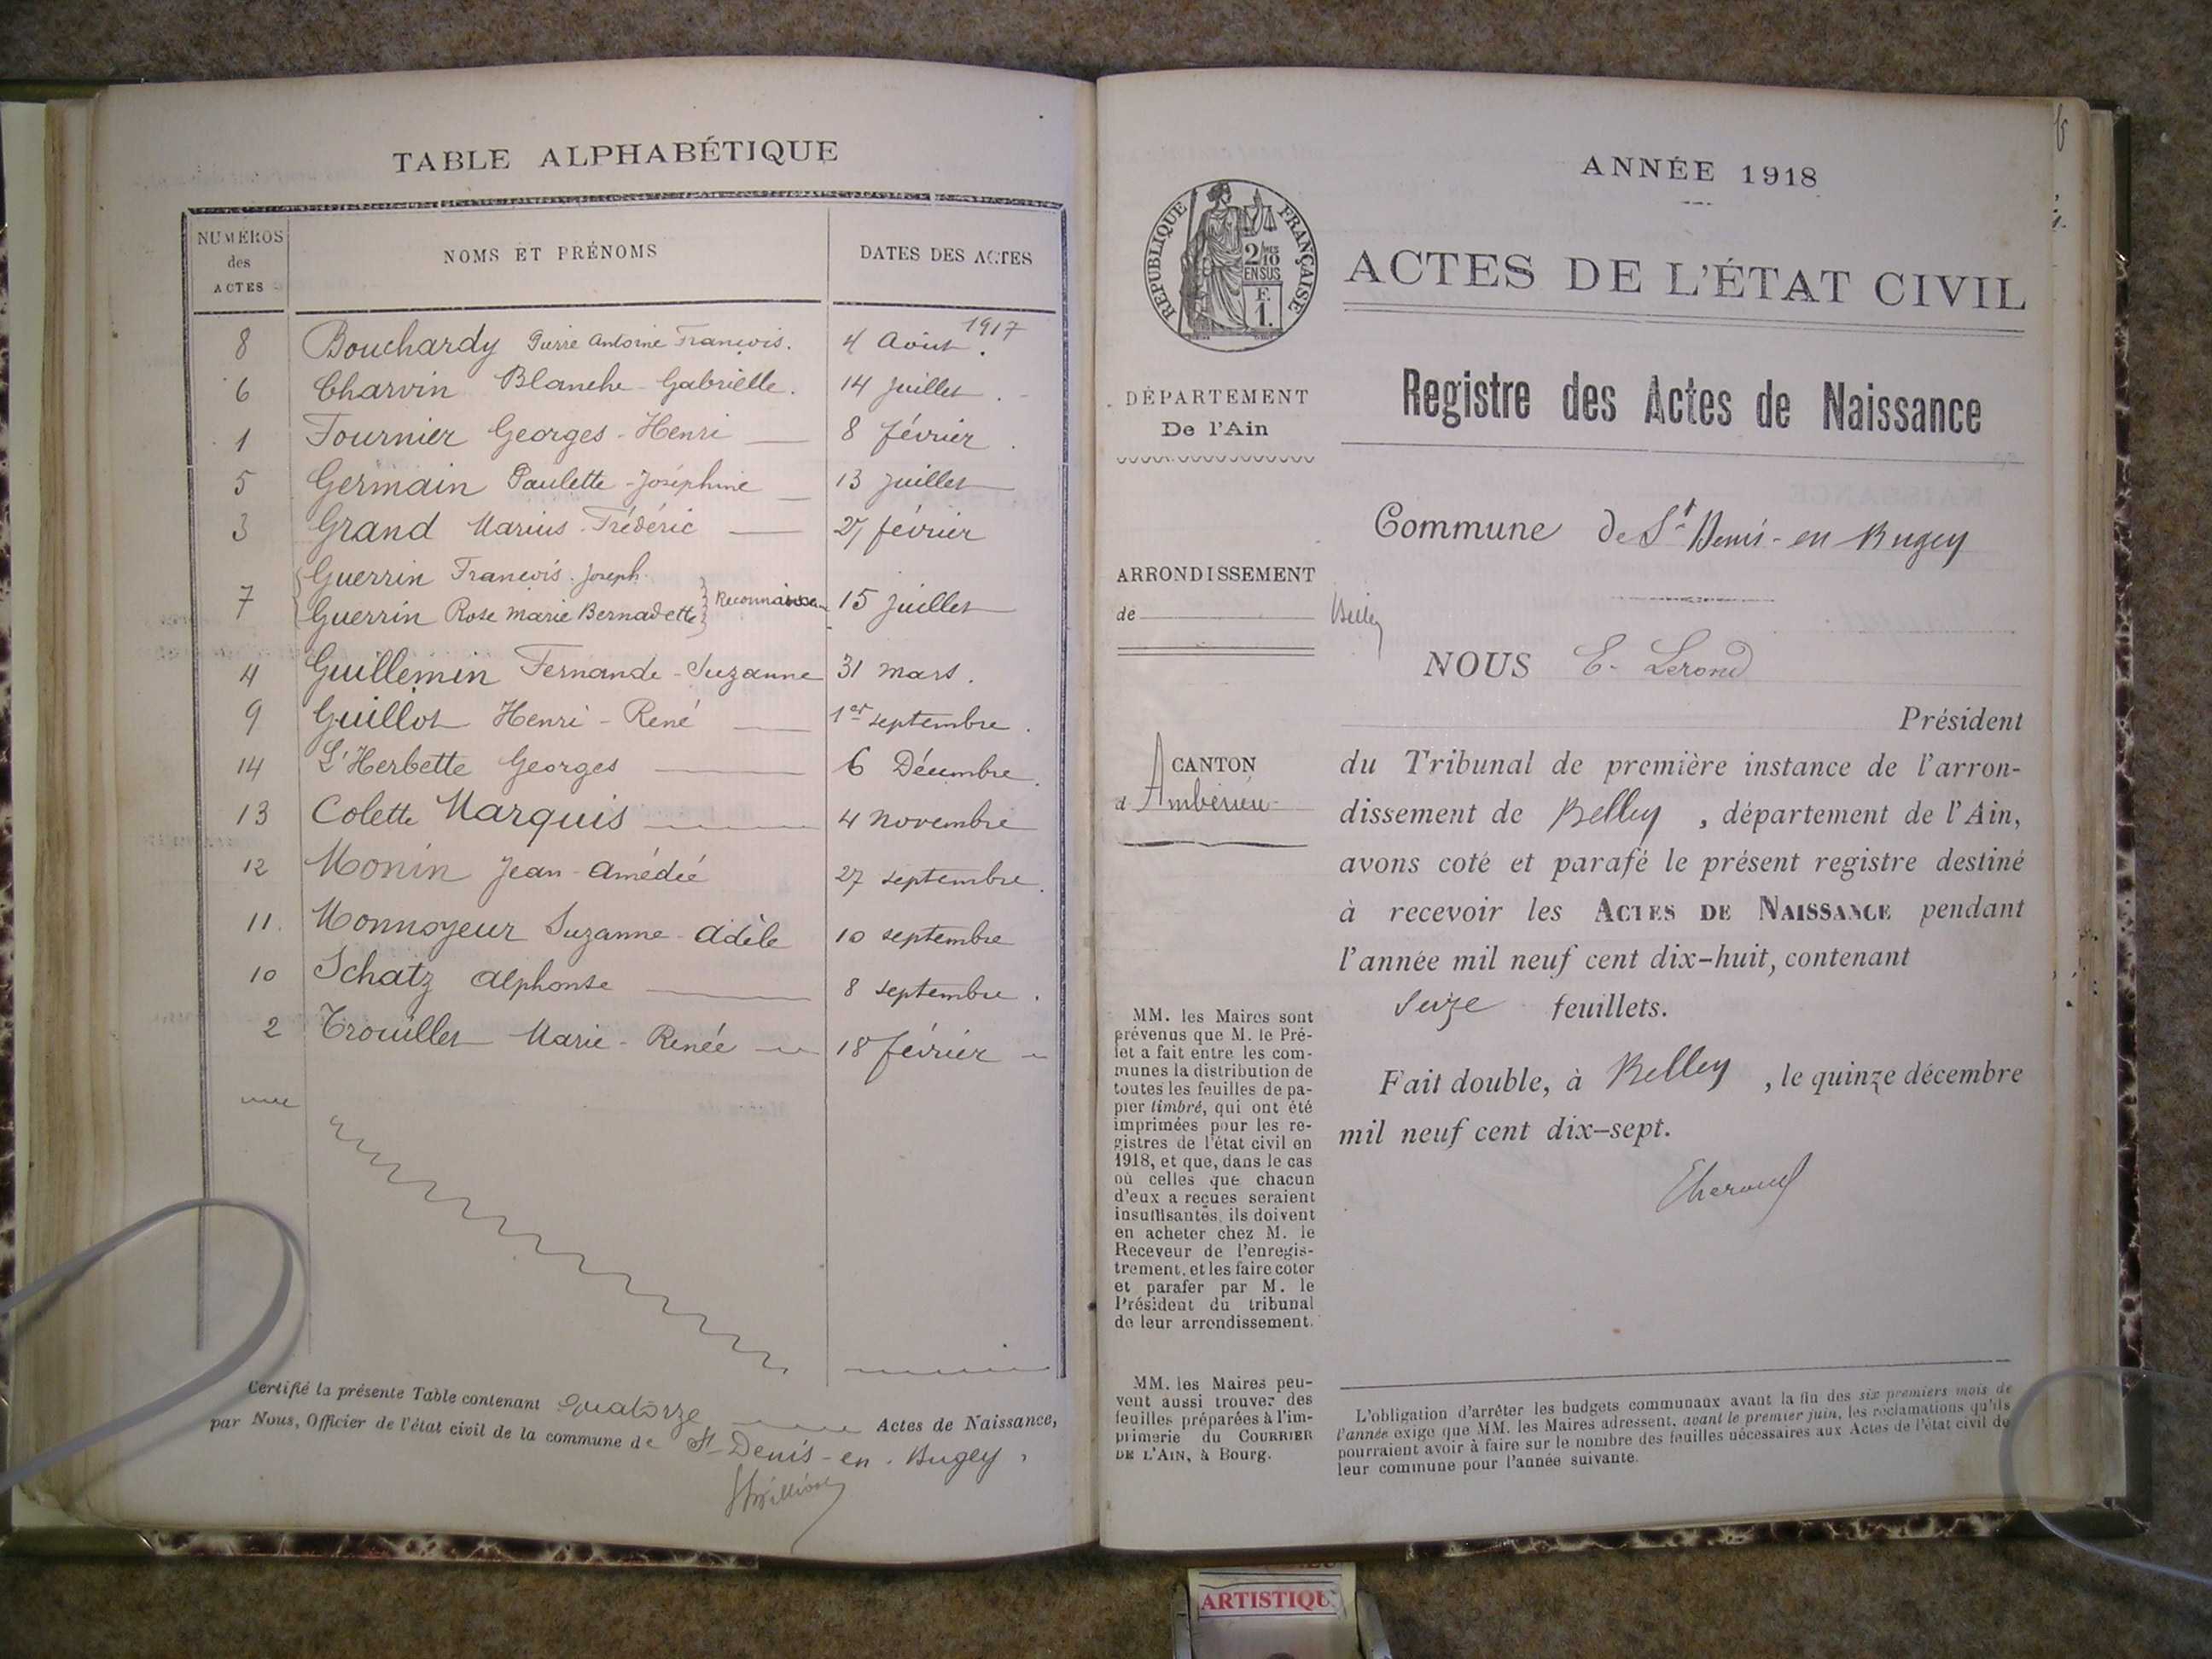 TABLE ALPHABÉTIQUE
NUMÉROS des ACTES NOMS ET PRÉNOMS DATES DES ACTES
8 Bouchardy Pierre Antoine François. 4 Août 1917.
6 Charvin Blanche-Gabrielle. 14 juillet.
1 Fournier Georges-Henri 8 février.
5 Germain Paulette-Joséphine 13 juillet
3 Grand Marius-Frédéric 27 février
Guerrin François-Joseph
7 Guerrin Rose Marie Bernadette Reconnaissance 15 juillet
4 Guillemin Fernande-Suzanne 31 mars.
9 Guillot Henri-René 1er septembre.
14 L'Herbette Georges 6 Décembre.
13 Colette Marquis 4 novembre
12 Monin Jean-Amédée 27 septembre.
11. Monnoyeur Suzanne-Adèle 10 septembre
10 Schatz Alphonse 8 septembre.
2 Trouillet Marie-Renée 18 février
Certifié la présente Table contenant quatorze Actes de Naissance,
par Nous, Officier de l'état civil de la commune de St Denis-en-Bugey,
ANNÉE 1918
RÉPUBLIQUE FRANÇAISE
2/10
EN SUS
F.
1.
ACTES DE L'ÉTAT CIVIL
DÉPARTEMENT
De l'Ain
ARRONDISSEMENT
de Belley
CANTON
d'Ambérieu
MM. les Maires sont
prévenus que M. le Pré-
fet a fait entre les com-
munes la distribution de
toutes les feuilles de pa-
pier timbré, qui ont été
imprimées pour les re-
gistres de l'état civil en
1918, et que, dans le cas
où celles que chacun
d'eux a reçues seraient
insuffisantes, ils doivent
en acheter chez M. le
Receveur de l'enregis-
trement, et les faire coter
et parafer par M. le
Président du tribunal
de leur arrondissement.
MM. les Maires peu-
vent aussi trouver des
feuilles préparées à l'im-
primerie du COURRIER
DE L'AIN, à Bourg.
Registre des Actes de Naissance
Commune de St Denis-en Bugey
NOUS E. Lerond
Président
du Tribunal de première instance de l'arron-
dissement de Belley, département de l'Ain,
avons coté et parafé le présent registre destiné
à recevoir les ACTES DE NAISSANCE pendant
l'année mil neuf cent dix-huit, contenant
seize feuillets.
Fait double, à Belley, le quinze décembre
mil neuf cent dix-sept.
L'obligation d'arrêter les budgets communaux avant la fin des six premiers mois de
l'année exige que MM. les Maires adressent, avant le premier juin, les réclamations qu'ils
pourraient avoir à faire sur le nombre des feuilles nécessaires aux Actes de l'état civil de
leur commune pour l'année suivante.
ARTISTIQU